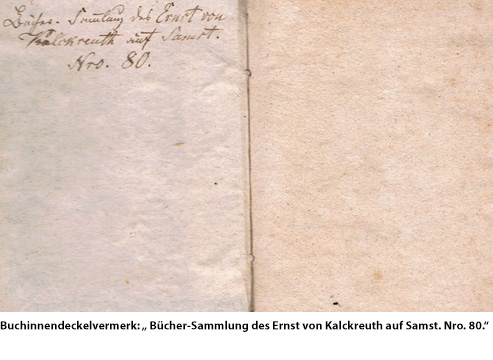 Bücher-Sammlung des Ernst von
Kalckreuth auf Samst.
Nro. 80.
Buchinnendeckelvermerk: „ Bücher-Sammlung des Ernst von Kalckreuth auf Samst. Nro. 80.“